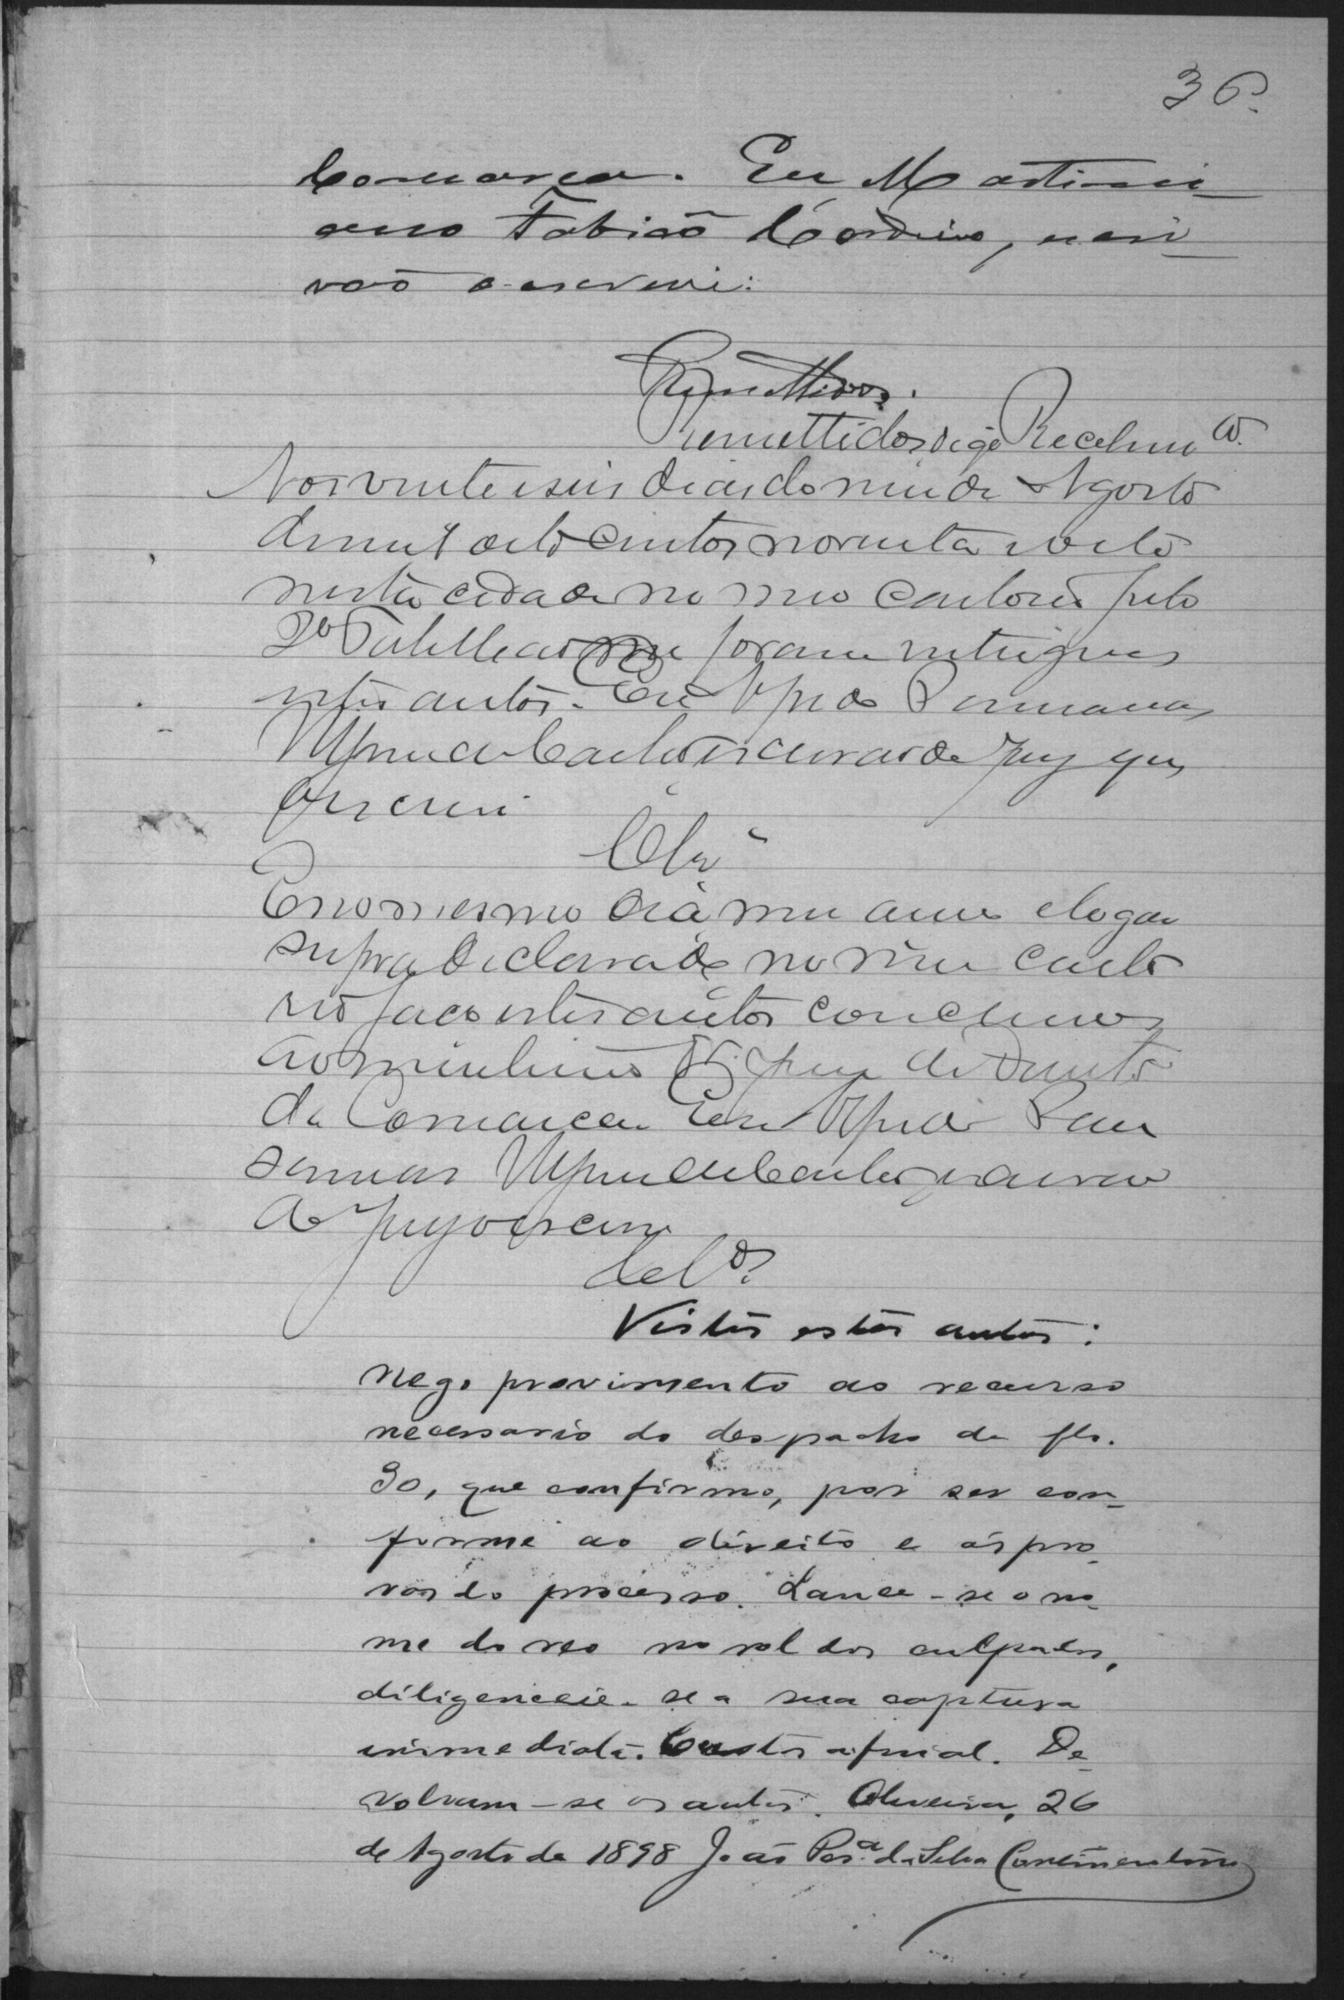 36.
Comarca. Eu Martini-
ano Fabião Cordeiro, escri-
vão o escrevi.
Remettidos.
Remettidos digo Recebim.to
Aos vinte e seis dias do mez de Agosto
de mil oito centos noventa e oito
nesta cidade no meo cartorio pelo
2º Tabelleão me foram entregues
estes autos. Eu
escrivão de paz que
o escrevi
Cls.
E no mesmo dia mez anno e logar
supra declarado no meu carto
rio faço estes autos conclusos
ao meritissimo Dr. juiz de Direito
da Comarca. Eu
escrivão
de paz o escrevi
Cl.os
Vistos estes autos:
Nego provimento ao recurso
necessario do despacho de fls.
30, que confirmo, por ser con-
forme ao direito e ás pro-
vas do processo. Lance-se o no-
me do reo no rol dos culpados,
diligencie-se a sua captura
immediata. Custas afinal. De-
volvam-se os autos. Oliveira, 26
de Agosto de 1898 João Per.a da Silva Continentino